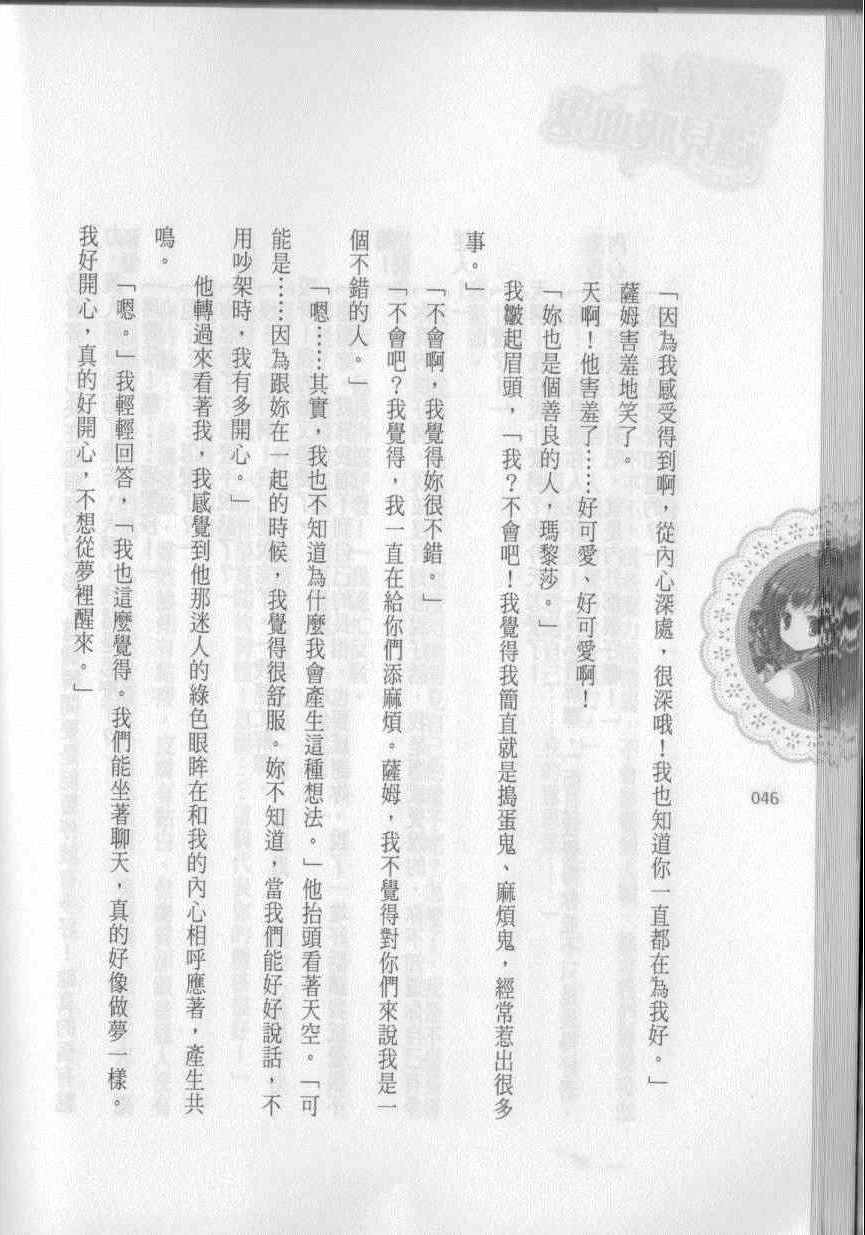 「因為我感受得到啊，從內心深處，很深哦！我也知道你一直都在為我好。」
薩姆害羞地笑了。
天啊！他害羞了……好可愛、好可愛啊！
「妳也是個善良的人，瑪黎莎。」
我皺起眉頭，「我？不會吧！我覺得我簡直就是搗蛋鬼、麻煩鬼，經常惹出很多
事。」
「不會啊，我覺得妳很不錯。」
「不會吧？我覺得，我一直在給你們添麻煩。薩姆，我不覺得對你們來說我是一
個不錯的人。」
「嗯……其實，我也不知道為什麼我會產生這種想法。」他抬頭看著天空。「可
能是……因為跟妳在一起的時候，我覺得很舒服。妳不知道，當我們能好好說話，不
用吵架時，我有多開心。」
他轉過來看著我，我感覺到他那迷人的綠色眼眸在和我的內心相呼應著，產生共
鳴。
「嗯。」我輕輕回答，「我也這麼覺得。我們能坐著聊天，真的好像做夢一樣。
我好開心，真的好開心，不想從夢裡醒來。」
046